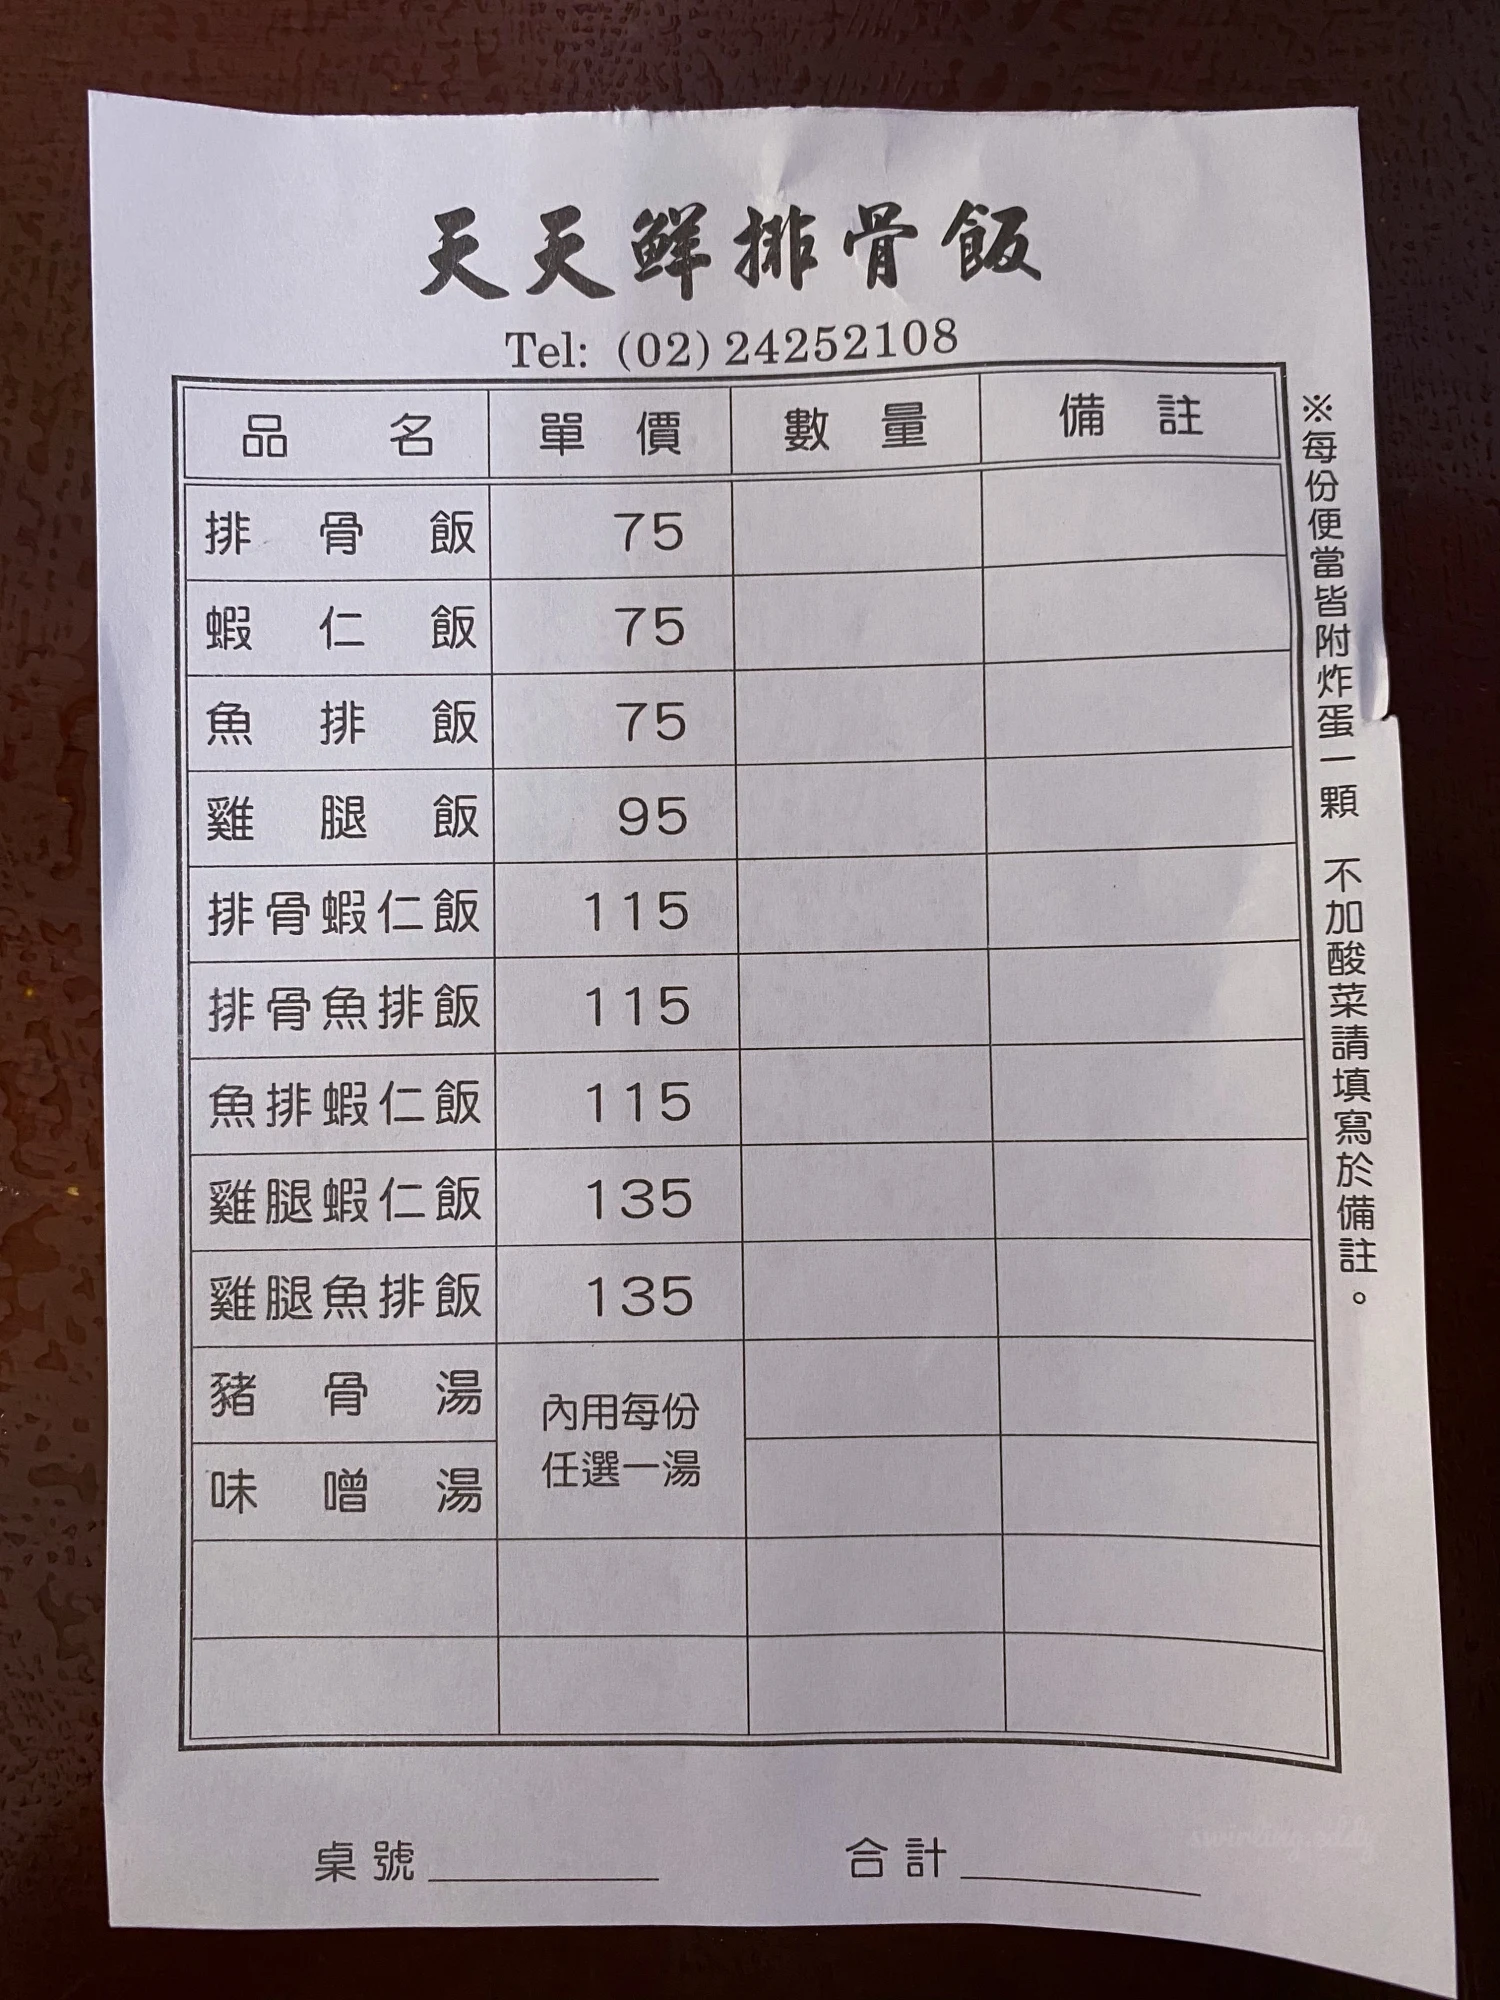 天天鮮排骨飯
Tel: (02) 24252108
品名 單價 數量 備註
排骨飯 75
蝦仁飯 75
魚排飯 75
雞腿飯 95
排骨蝦仁飯 115
排骨魚排飯 115
魚排蝦仁飯 115
雞腿蝦仁飯 135
雞腿魚排飯 135
豬骨湯
味噌湯
內用每份
任選一湯
※每份便當皆附炸蛋一顆 不加酸菜請填寫於備註。
桌號 合計